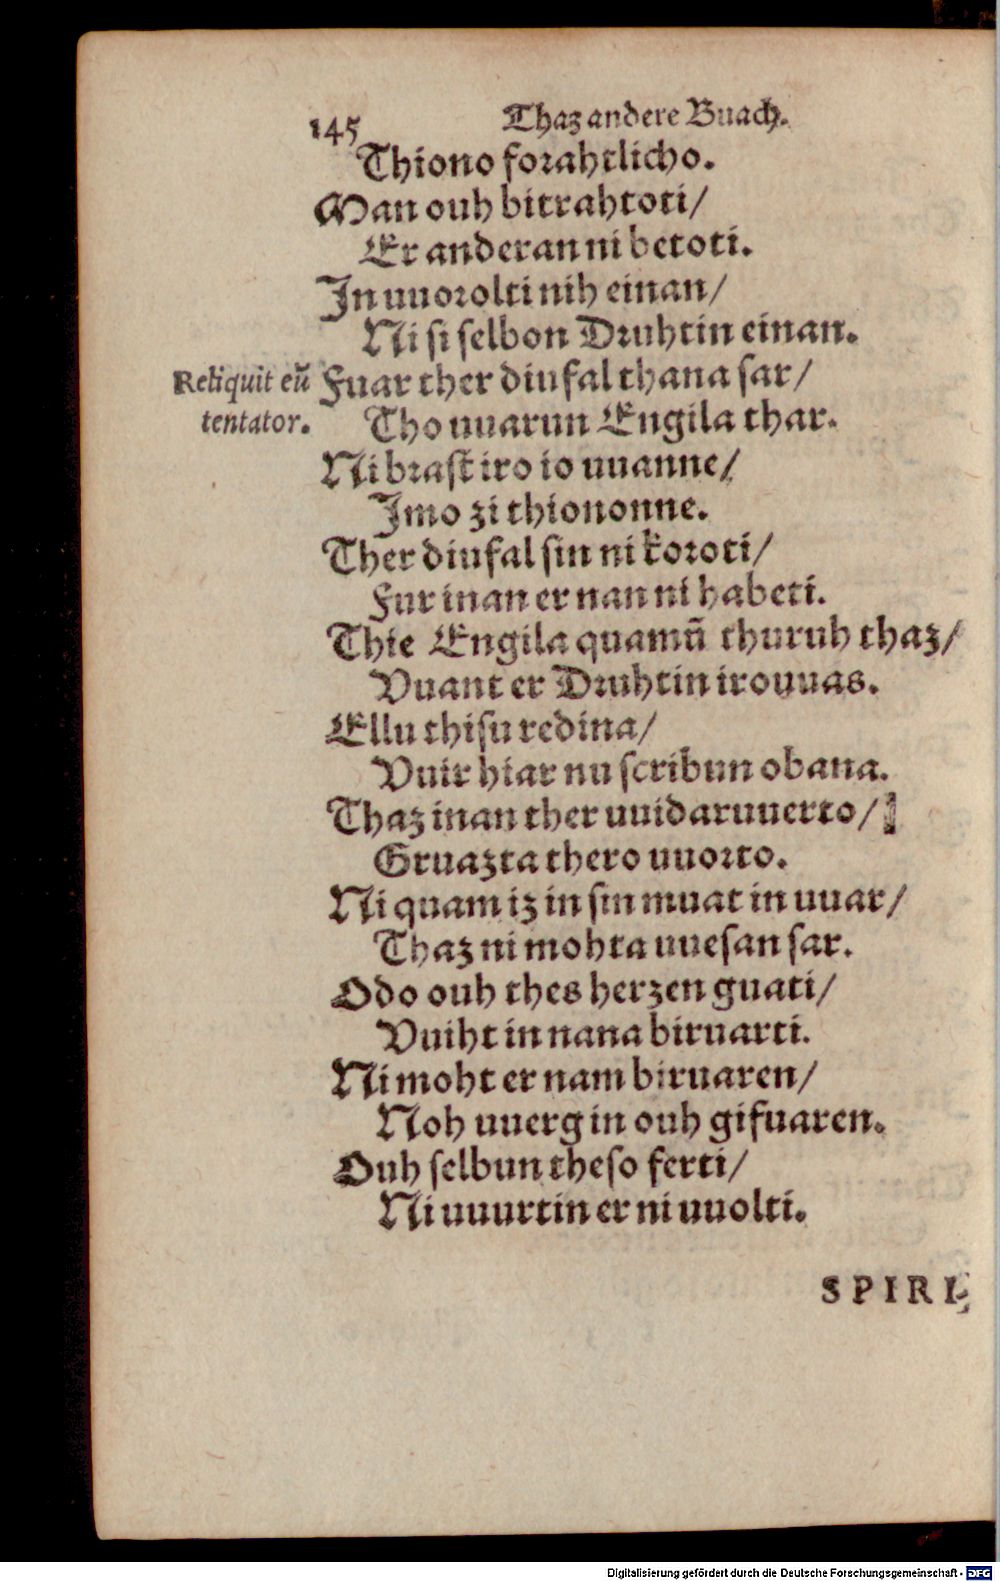 145 Thaz andere Buach.
Thiono forahtlicho.
Man ouh bitrahtoti/
Er anderan ni betoti.
In uuorolti nih einan/
Ni si selbon Druhtin einan.
Reliquit eū
tentator.
Fuar ther diufal thana sar/
Tho uuarun Engila thar.
Ni brast iro io uuanne/
Imo zi thiononne.
Ther diufal sin ni koroti/
Fur inan er nan ni habeti.
Thie Engila quamū thuruh thaz/
Vuant er Druhtin irouuas.
Ellu thisu redina/
Vuir hiar nu scribun obana.
Thaz inan ther uuidaruuerto/
Gruazta thero uuorto.
Ni quam iz in sin muat in uuar/
Thaz ni mohta uuesan sar.
Odo ouh thes herzen guati/
Vuiht in nana biruarti.
Ni moht er nam biruaren/
Noh uuergin ouh gifuaren.
Ouh selbun theso ferti/
Ni uuurtin er ni uuolti.
SPIRI-
Digitalisierung gefördert durch die Deutsche Forschungsgemeinschaft - DFG